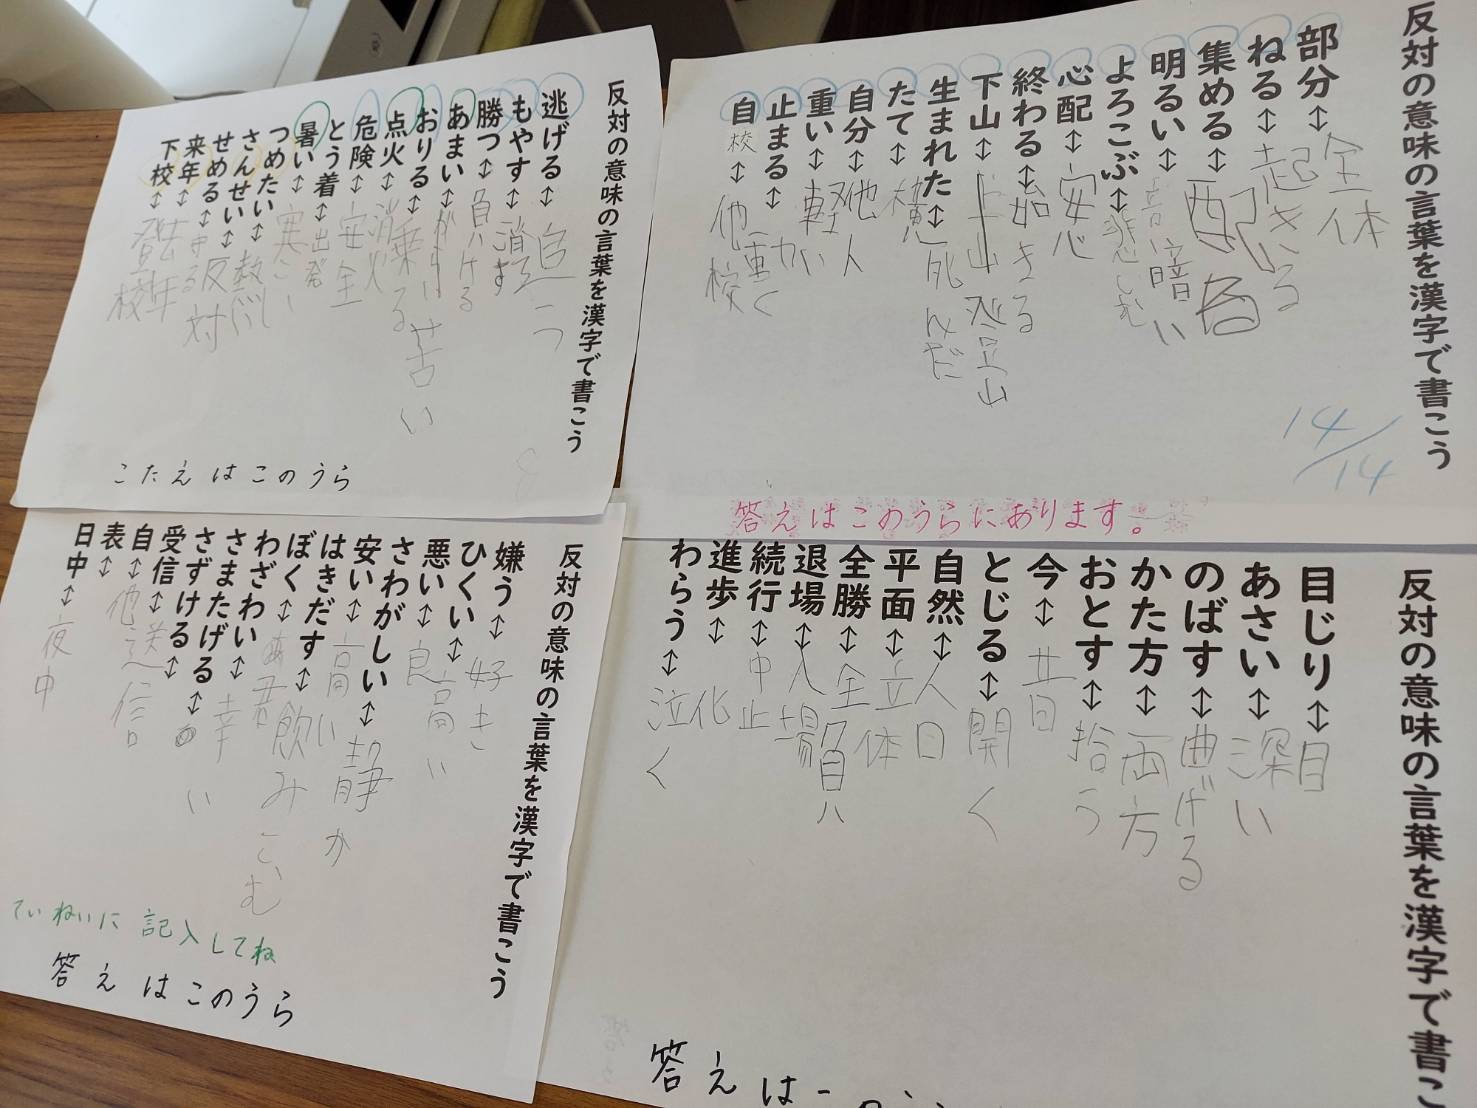 反対の意味の言葉を漢字で書こう
部分↕全体
ねる↕起きる
集める↕配る
明るい↕暗い
よろこぶ↕悲しむ
心配↕安心
終わる↕始きる
下山↕上山 登山
生まれた↕死んだ
たて↕横
自分↕他人
重い↕軽い
止まる↕動く
自校↕他校
14/14
答えはこのうらにあります。
反対の意味の言葉を漢字で書こう
逃げる↕追う
もやす↕消す
勝つ↕負ける
あまい↕苦い
おりる↕乗る
点火↕消火
危険↕安全
とう着↕出発
暑い↕寒い
つめたい↕熱い
さんせい↕反対
せめる↕守る
来年↕去年
下校↕登校
こたえはこのうら
反対の意味の言葉を漢字で書こう
目じり↕目
あさい↕深い
のばす↕曲げる
かた方↕両方
おとす↕拾う
今↕昔
とじる↕開く
自然↕人口
平面↕立体
全勝↕全負
退場↕入場
続行↕中止
進歩↕化
わらう↕泣く
答えはこのうら
反対の意味の言葉を漢字で書こう
嫌う↕好き
ひくい↕高い
悪い↕良い
さわがしい↕静か
安い↕高い
はきだす↕飲みこむ
ぼく↕君
わざわい↕幸い
さまたげる↕
さずける↕
受信↕送信
自↕他
表↕
日中↕夜中
ていねいに記入してね
答えはこのうら